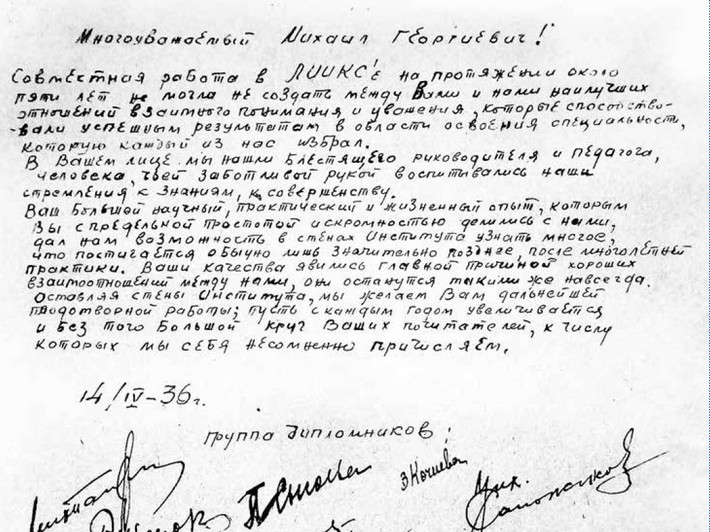 Многоуважаемый Михаил Георгиевич!
Совместная работа в ЛИИКС'е на протяжении около
пяти лет не могла не создать между Вами и нами наилучших
отношений взаимного понимания и уважения, которые способство-
-вали успешным результатам в области освоения специальности,
которую каждый из нас избрал.
В Вашем лице мы нашли блестящего руководителя и педагога,
человека, чьей заботливой рукой воспитывались наши
стремления к знаниям, к совершенству.
Ваш большой научный, практический и жизненный опыт, которым
Вы с предельной простотой и скромностью делились с нами,
дал нам возможность в стенах Института узнать многое,
что постигается обычно лишь значительно позднее, после многолетней
практики. Ваши качества явились главной причиной хороших
взаимоотношений между нами, они останутся такими же навсегда.
Оставляя стены Института, мы желаем Вам дальнейшей
плодотворной работы; пусть с каждым годом увеличивается
и без того большой круг Ваших почитателей, к числу
которых мы себя несомненно причисляем.
14/IV-36г.
Группа дипломников:
З Кочнева